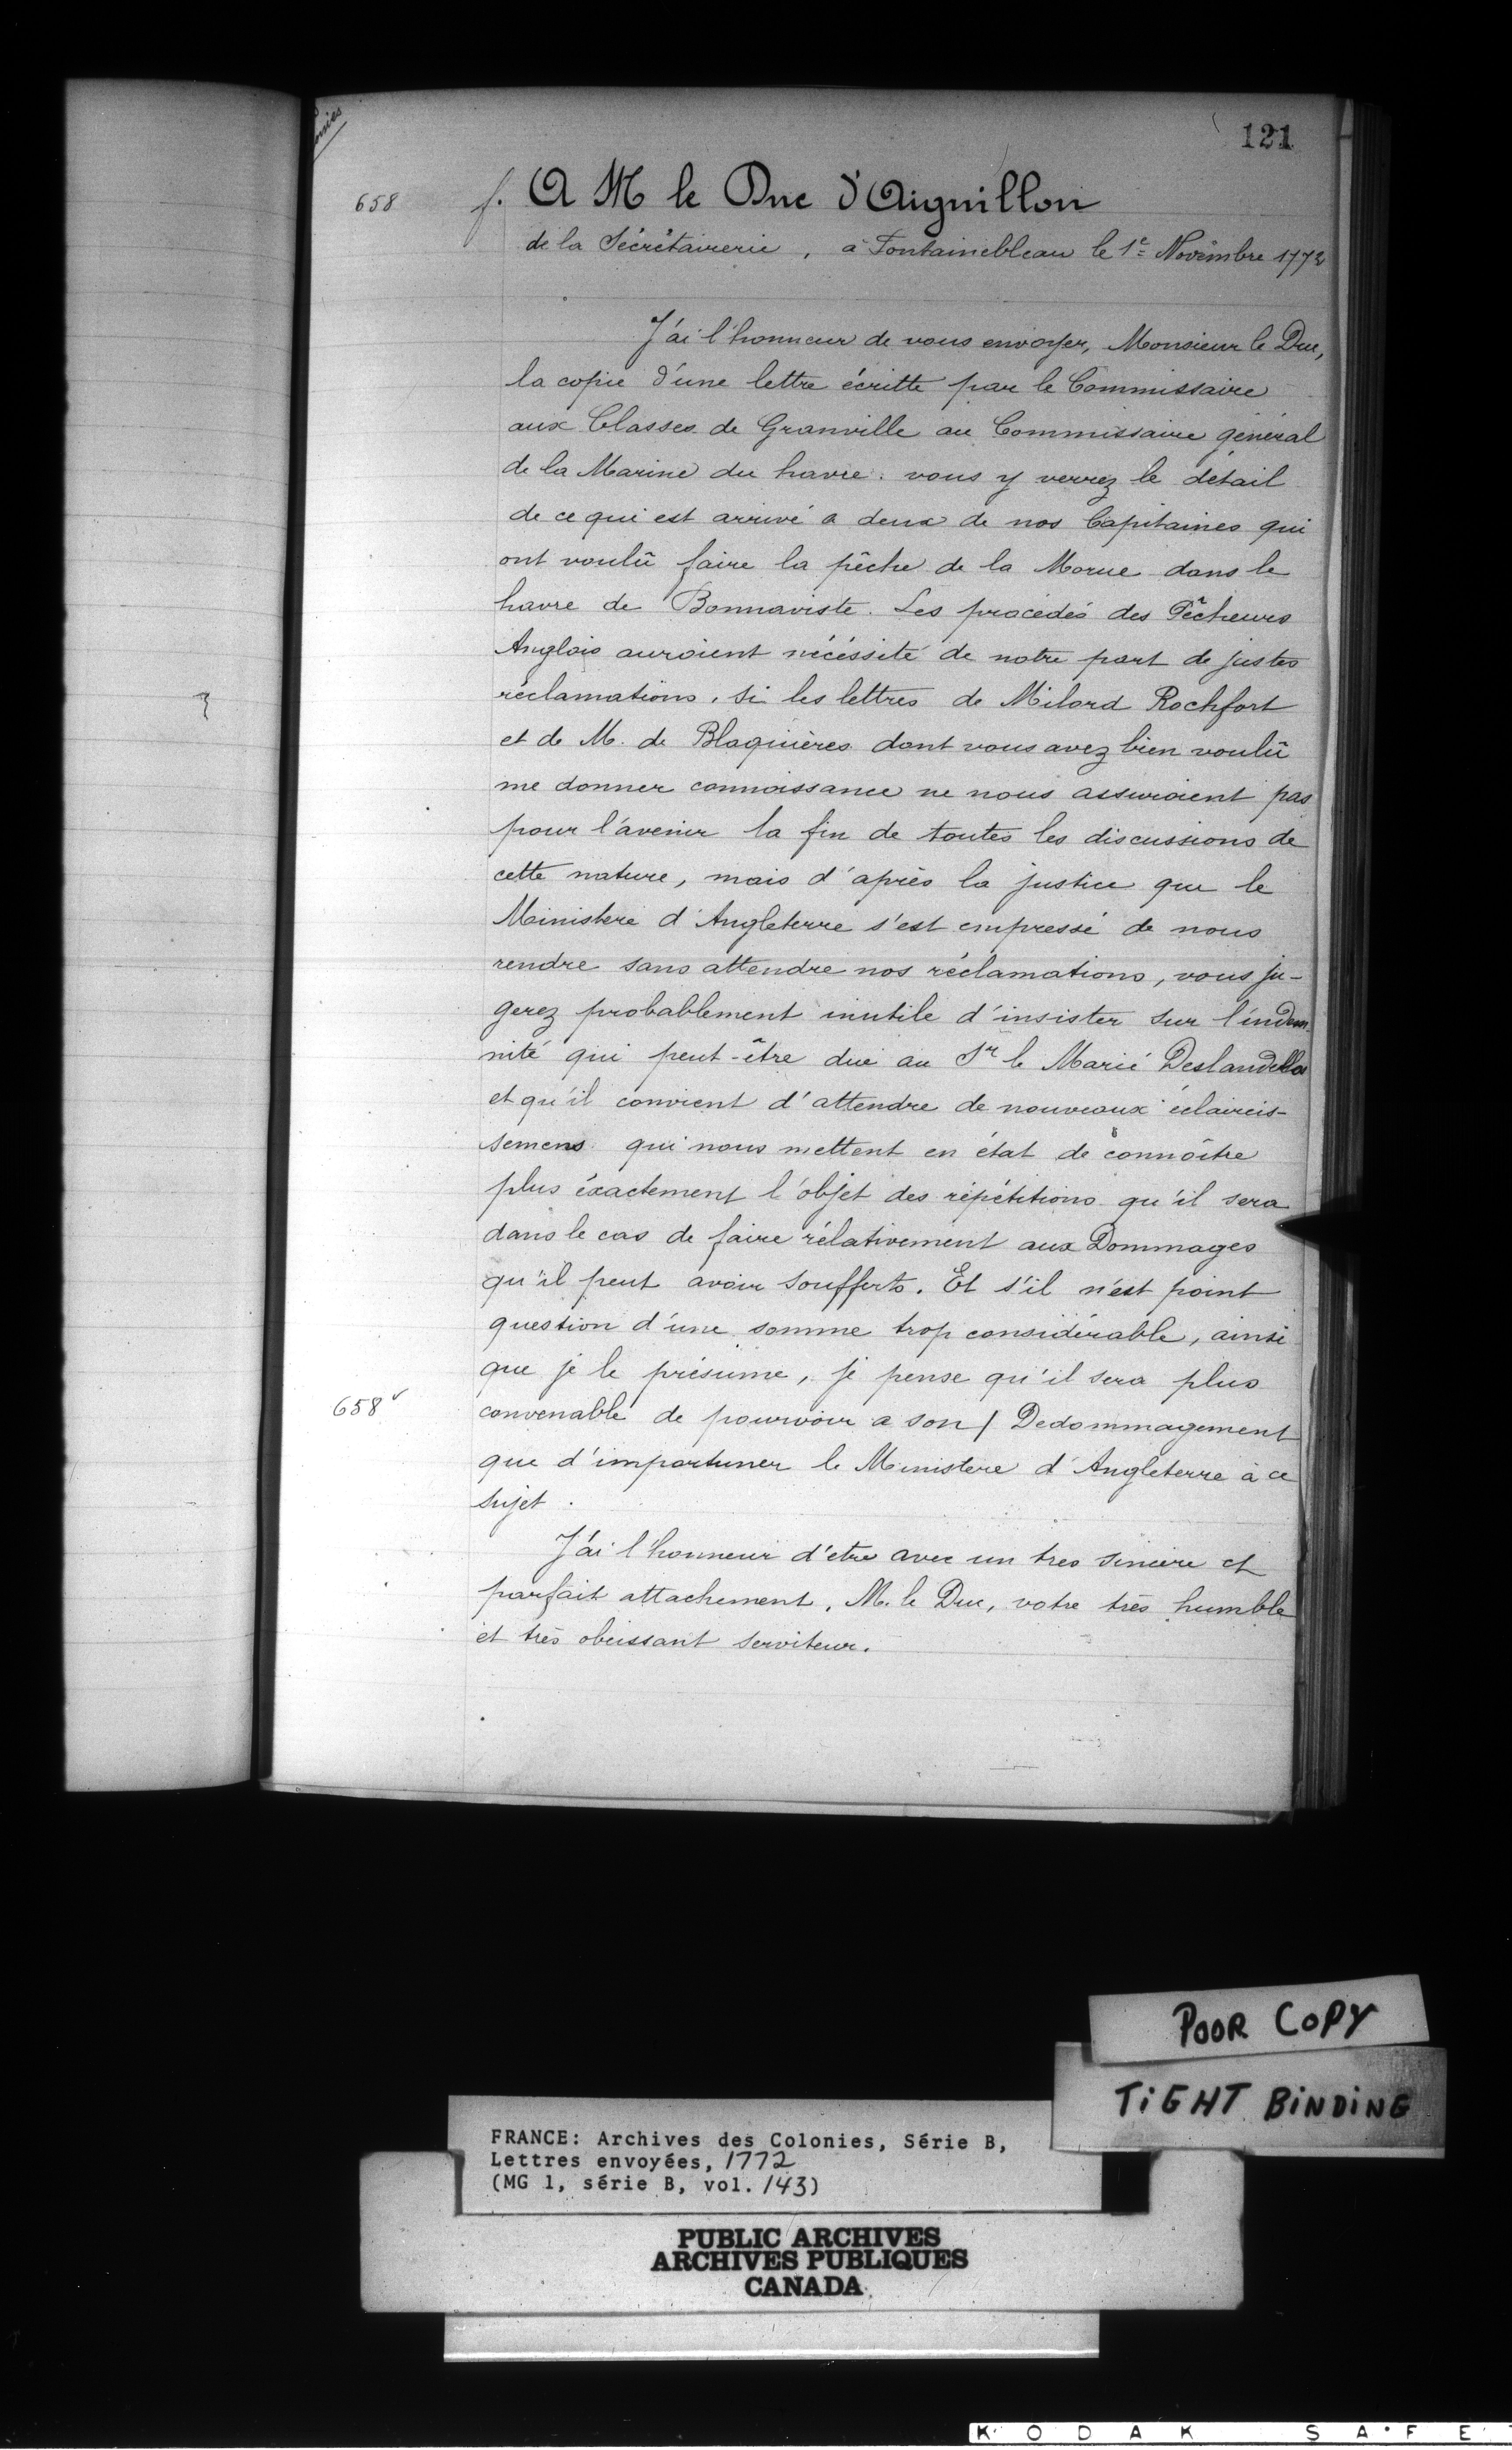 121
658
f. A M le Duc d'Aiguillon
de la Sécrétairerie, à Fontainebleau le 1e= Novembre 1772
J'ai l'honneur de vous envoyer, Monsieur le Duc,
la copie d'une lettre écritte par le Commissaire
aux Classes de Granville au Commissaire général
de la Marine du havre. vous y verrez le détail
de ce qui est arrivé a deux de nos Capitaines qui
ont voulû faire la pêche de la Morue dans le
havre de Bonnaviste. Les procédés des Pêcheurs
Anglois auroient nécéssité de notre part de justes
réclamations, si les lettres de Milord Rochfort
et de M. de Blaquières dont vous avez bien voulû
me donner connoissance ne nous assuroient pas
pour l'avenir la fin de toutes les discussions de
cette nature, mais d'après la justice que le
Ministere d'Angleterre s'est empressé de nous
rendre sans attendre nos réclamations, vous ju-
gerez probablement inutile d'insister sur l'indem-
nité qui peut-être due au Sr le Marié Deslandelles
et qu'il convient d'attendre de nouveaux éclaircis-
semens qui nous mettent en état de connoître
plus éxactement l'objet des répétitions qu'il sera
dans le cas de faire rélativement aux Dommages
qu'il peut avoir soufferts. Et s'il n'est point
question d'une somme trop considérable, ainsi
que je le présume, je pense qu'il sera plus
658v
convenable de pourvoir a son / Dedommagement
que d'importuner le Ministere d'Angleterre à ce
sujet.
J'ai l'honneur d'etre avec un tres sincere et
parfait attachement, M. le Duc, votre très humble
et très obeissant serviteur.
POOR COPY
TIGHT BINDING
FRANCE: Archives des Colonies, Série B,
Lettres envoyées, 1772
(MG 1, série B, vol. 143)
PUBLIC ARCHIVES
ARCHIVES PUBLIQUES
CANADA
KODAK SAFE